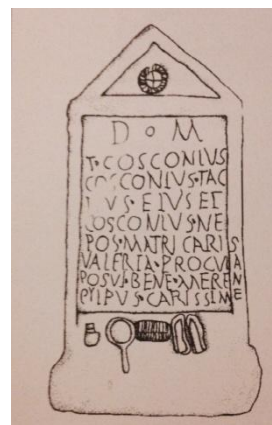 D M
T·COSCONIVS
COSCONIVS·TAC
VS·EIVS ET
COSCONIVS·NE
POS·MATRI CARIS
VALERIA·PROCVLA
POSVI·BENE·MEREN
PVPVS·CARISSIME